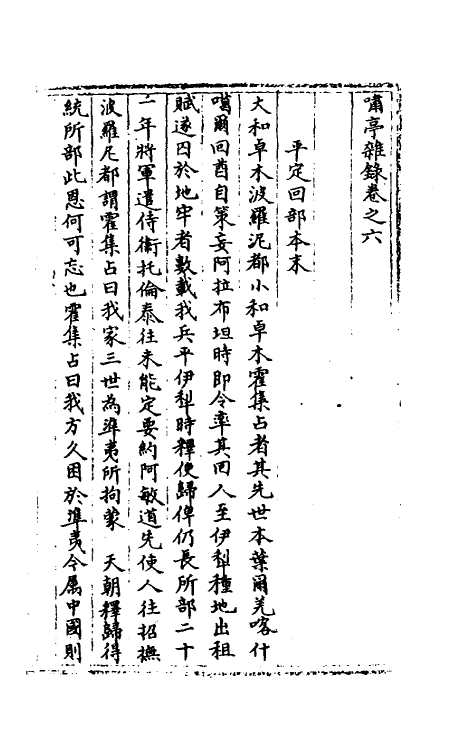 嘯亭雜錄卷之六
平定回部本末
大和卓木波羅泥都小和卓木霍集占者其先世本葉爾羌喀什
噶爾回酋自策妄阿拉布坦時即令率其回人至伊犁種地出租
賦遂囚於地牢者數載我兵平伊犁時釋使歸俾仍長所部二十
二年將軍遣侍衛托倫泰往未能定要約阿敏道先使人往招撫
波羅尼都謂霍集占曰我家三世為準夷所拘蒙 天朝釋歸得
統所部此恩何可忘也霍集占曰我方久困於準夷今屬中國則